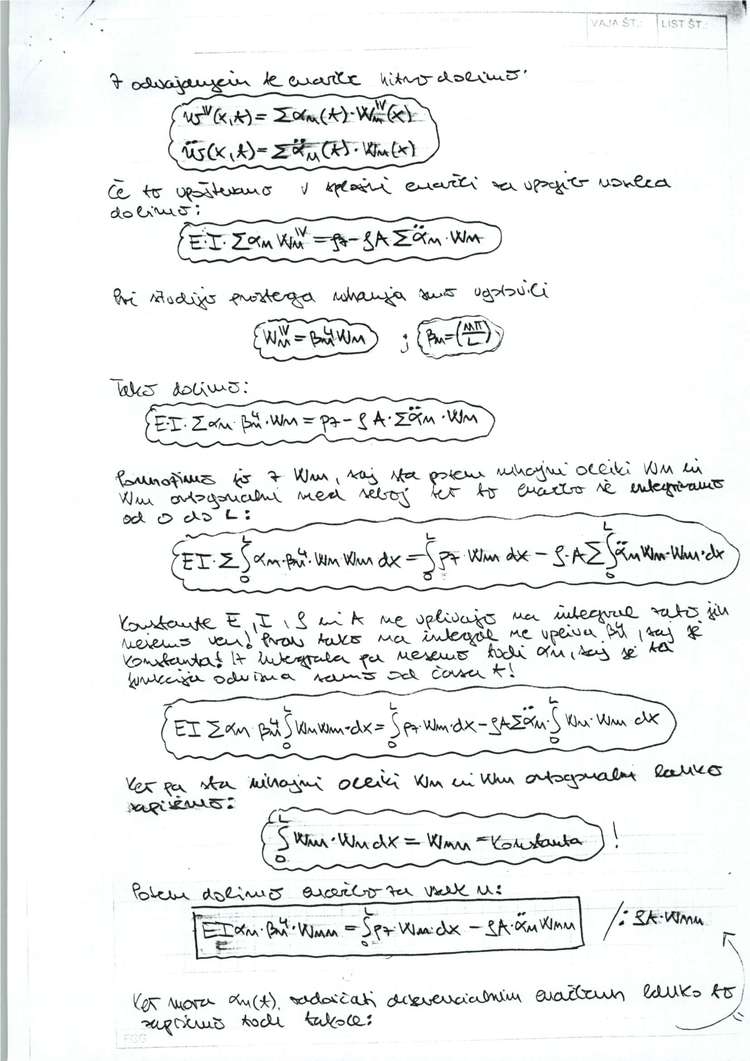 VAJA ŠT.: LIST ŠT.:
Z odvajanjem te enačbe hitro dobimo:
w^IV(x,t) = Σ αn(t)·Wn^IV(x)
ẅ(x,t) = Σ α̈n(t)·Wn(x)
Če to upoštevamo v splošni enačbi za upogib nosilca
dobimo:
E·I·Σ αn Wn^IV = pz - ρA Σ α̈n·Wn
Pri študiju prostega nihanja smo ugotovili
Wn^IV = βn^4 Wn ; βn = (nπ/L)
Tako dobimo:
E·I·Σ αn·βn^4·Wn = pz - ρ A·Σ α̈n·Wn
Pomnožimo jo z Wm, saj sta potem nihajni obliki Wn in
Wm ortogonalni med seboj ter to enačbo še integriramo
od 0 do L:
EI·Σ ∫₀ᴸ αn·βn^4·Wn Wm dx = ∫₀ᴸ pz Wm dx - ρ·A Σ ∫₀ᴸ α̈n Wn·Wm·dx
Konstante E, I, ρ in A ne vplivajo na integral zato jih
nesemo ven! Prav tako na integral ne vpliva βn^4, saj je
konstanta! Iz integrala pa nesemo tudi αn, saj je ta
funkcija odvisna samo od časa t!
EI Σ αn βn^4 ∫₀ᴸ Wn Wm·dx = ∫₀ᴸ pz·Wm·dx - ρA Σ α̈n·∫₀ᴸ Wn·Wm dx
Ker pa sta nihajni obliki Wn in Wm ortogonalni lahko
zapišemo:
∫₀ᴸ Wm·Wn dx = Wnn = konstanta !
Potem dobimo enačbo za vsak n:
EI αn·βn^4·Wnn = ∫₀ᴸ pz Wn·dx - ρA·α̈n Wnn /: ρA·Wnn
Ker mora αn(t) zadoščati diferencialnim enačbam lahko to
zapišemo tudi takole:
FGG